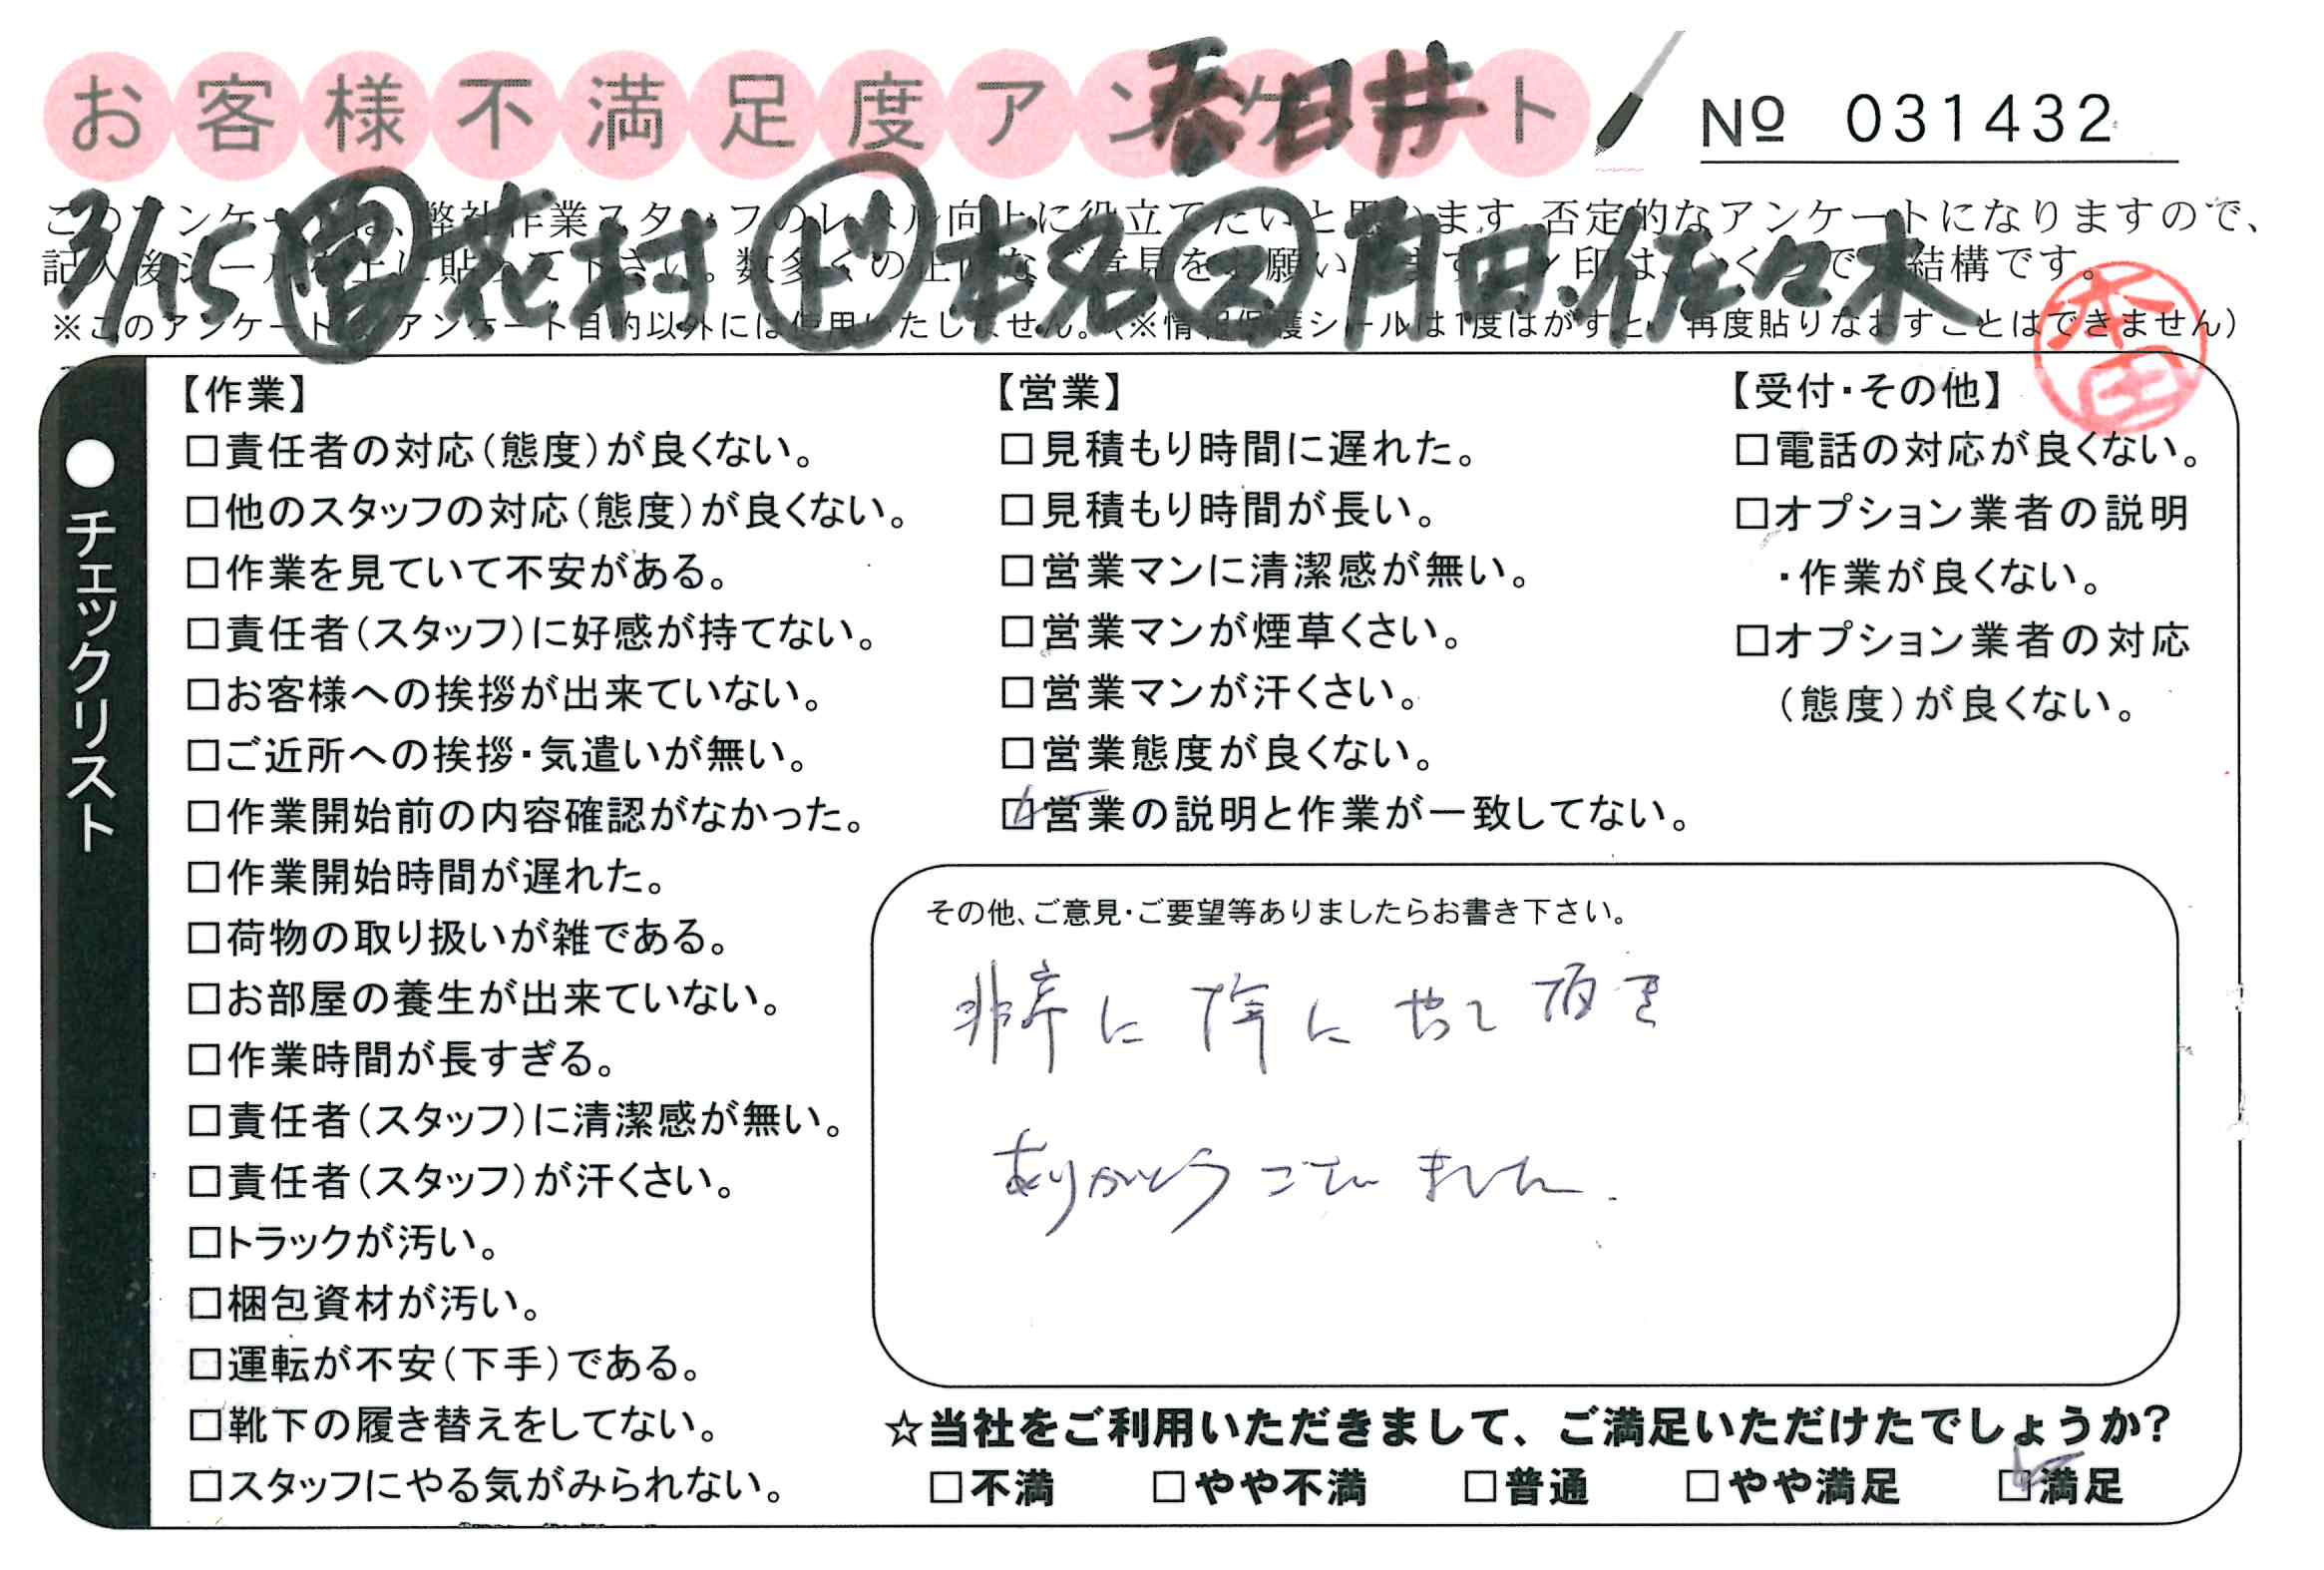 お客様不満足度アンケート
春日井
№ 031432
このアンケートは、弊社作業スタッフのレベル向上に役立てたいと思います。否定的なアンケートになりますので、
記入後シールを上に貼って下さい。数多くの正直なご意見をお願いします。
結構です。
※このアンケートはアンケート目的以外には使用いたしません。(※情報保護シールは1度はがすと、再度貼りなおすことはできません)
3/15 営 花村 ド 本名 ス 角田・佐々木
本田
●チェックリスト
【作業】
□責任者の対応(態度)が良くない。
□他のスタッフの対応(態度)が良くない。
□作業を見ていて不安がある。
□責任者(スタッフ)に好感が持てない。
□お客様への挨拶が出来ていない。
□ご近所への挨拶・気遣いが無い。
□作業開始前の内容確認がなかった。
□作業開始時間が遅れた。
□荷物の取り扱いが雑である。
□お部屋の養生が出来ていない。
□作業時間が長すぎる。
□責任者(スタッフ)に清潔感が無い。
□責任者(スタッフ)が汗くさい。
□トラックが汚い。
□梱包資材が汚い。
□運転が不安(下手)である。
□靴下の履き替えをしてない。
□スタッフにやる気がみられない。
【営業】
□見積もり時間に遅れた。
□見積もり時間が長い。
□営業マンに清潔感が無い。
□営業マンが煙草くさい。
□営業マンが汗くさい。
□営業態度が良くない。
☑営業の説明と作業が一致してない。
【受付・その他】
□電話の対応が良くない。
□オプション業者の説明
・作業が良くない。
□オプション業者の対応
(態度)が良くない。
その他、ご意見・ご要望等ありましたらお書き下さい。
に やって頂き
ありがとうございました.
☆当社をご利用いただきまして、ご満足いただけたでしょうか?
□不満 □やや不満 □普通 □やや満足 ☑満足